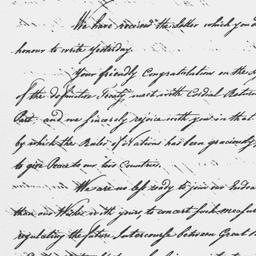 We have received the Letter which you d
honour to write Yesterday.
Your friendly Congratulation on the
of the definitive Treaty meet with Cordial Return
Part, and we sincerely rejoice with you in that
by which the Ruler of Nations has been graciously
to give Peace to our two Countries.
We are no less ready to join our Endea
than our Wishes with yours to concert such measur
regulating the future Intercourse between Great